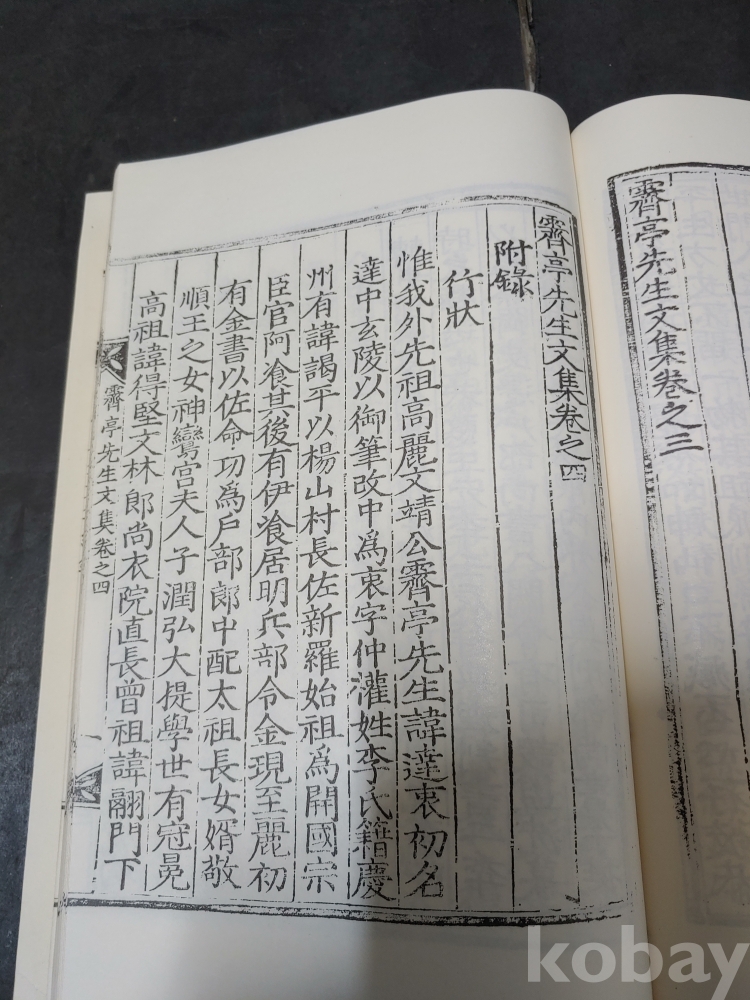 霽亭先生文集卷之三
霽亭先生文集卷之四
附錄
行狀
惟我外先祖高麗文靖公霽亭先生諱達衷初名
達中玄陵以御筆改中爲衷字仲灌姓李氏籍慶
州有諱謁平以楊山村長佐新羅始祖爲開國宗
臣官阿飡其後有伊飡居明兵部令金現至麗初
有金書以佐命功爲戶部郎中配太祖長女婿敬
順王之女神鸞宮夫人子潤弘大提學世有冠冕
高祖諱得堅文林郎尚衣院直長曾祖諱翮門下
霽亭先生文集卷之四
一
kobay